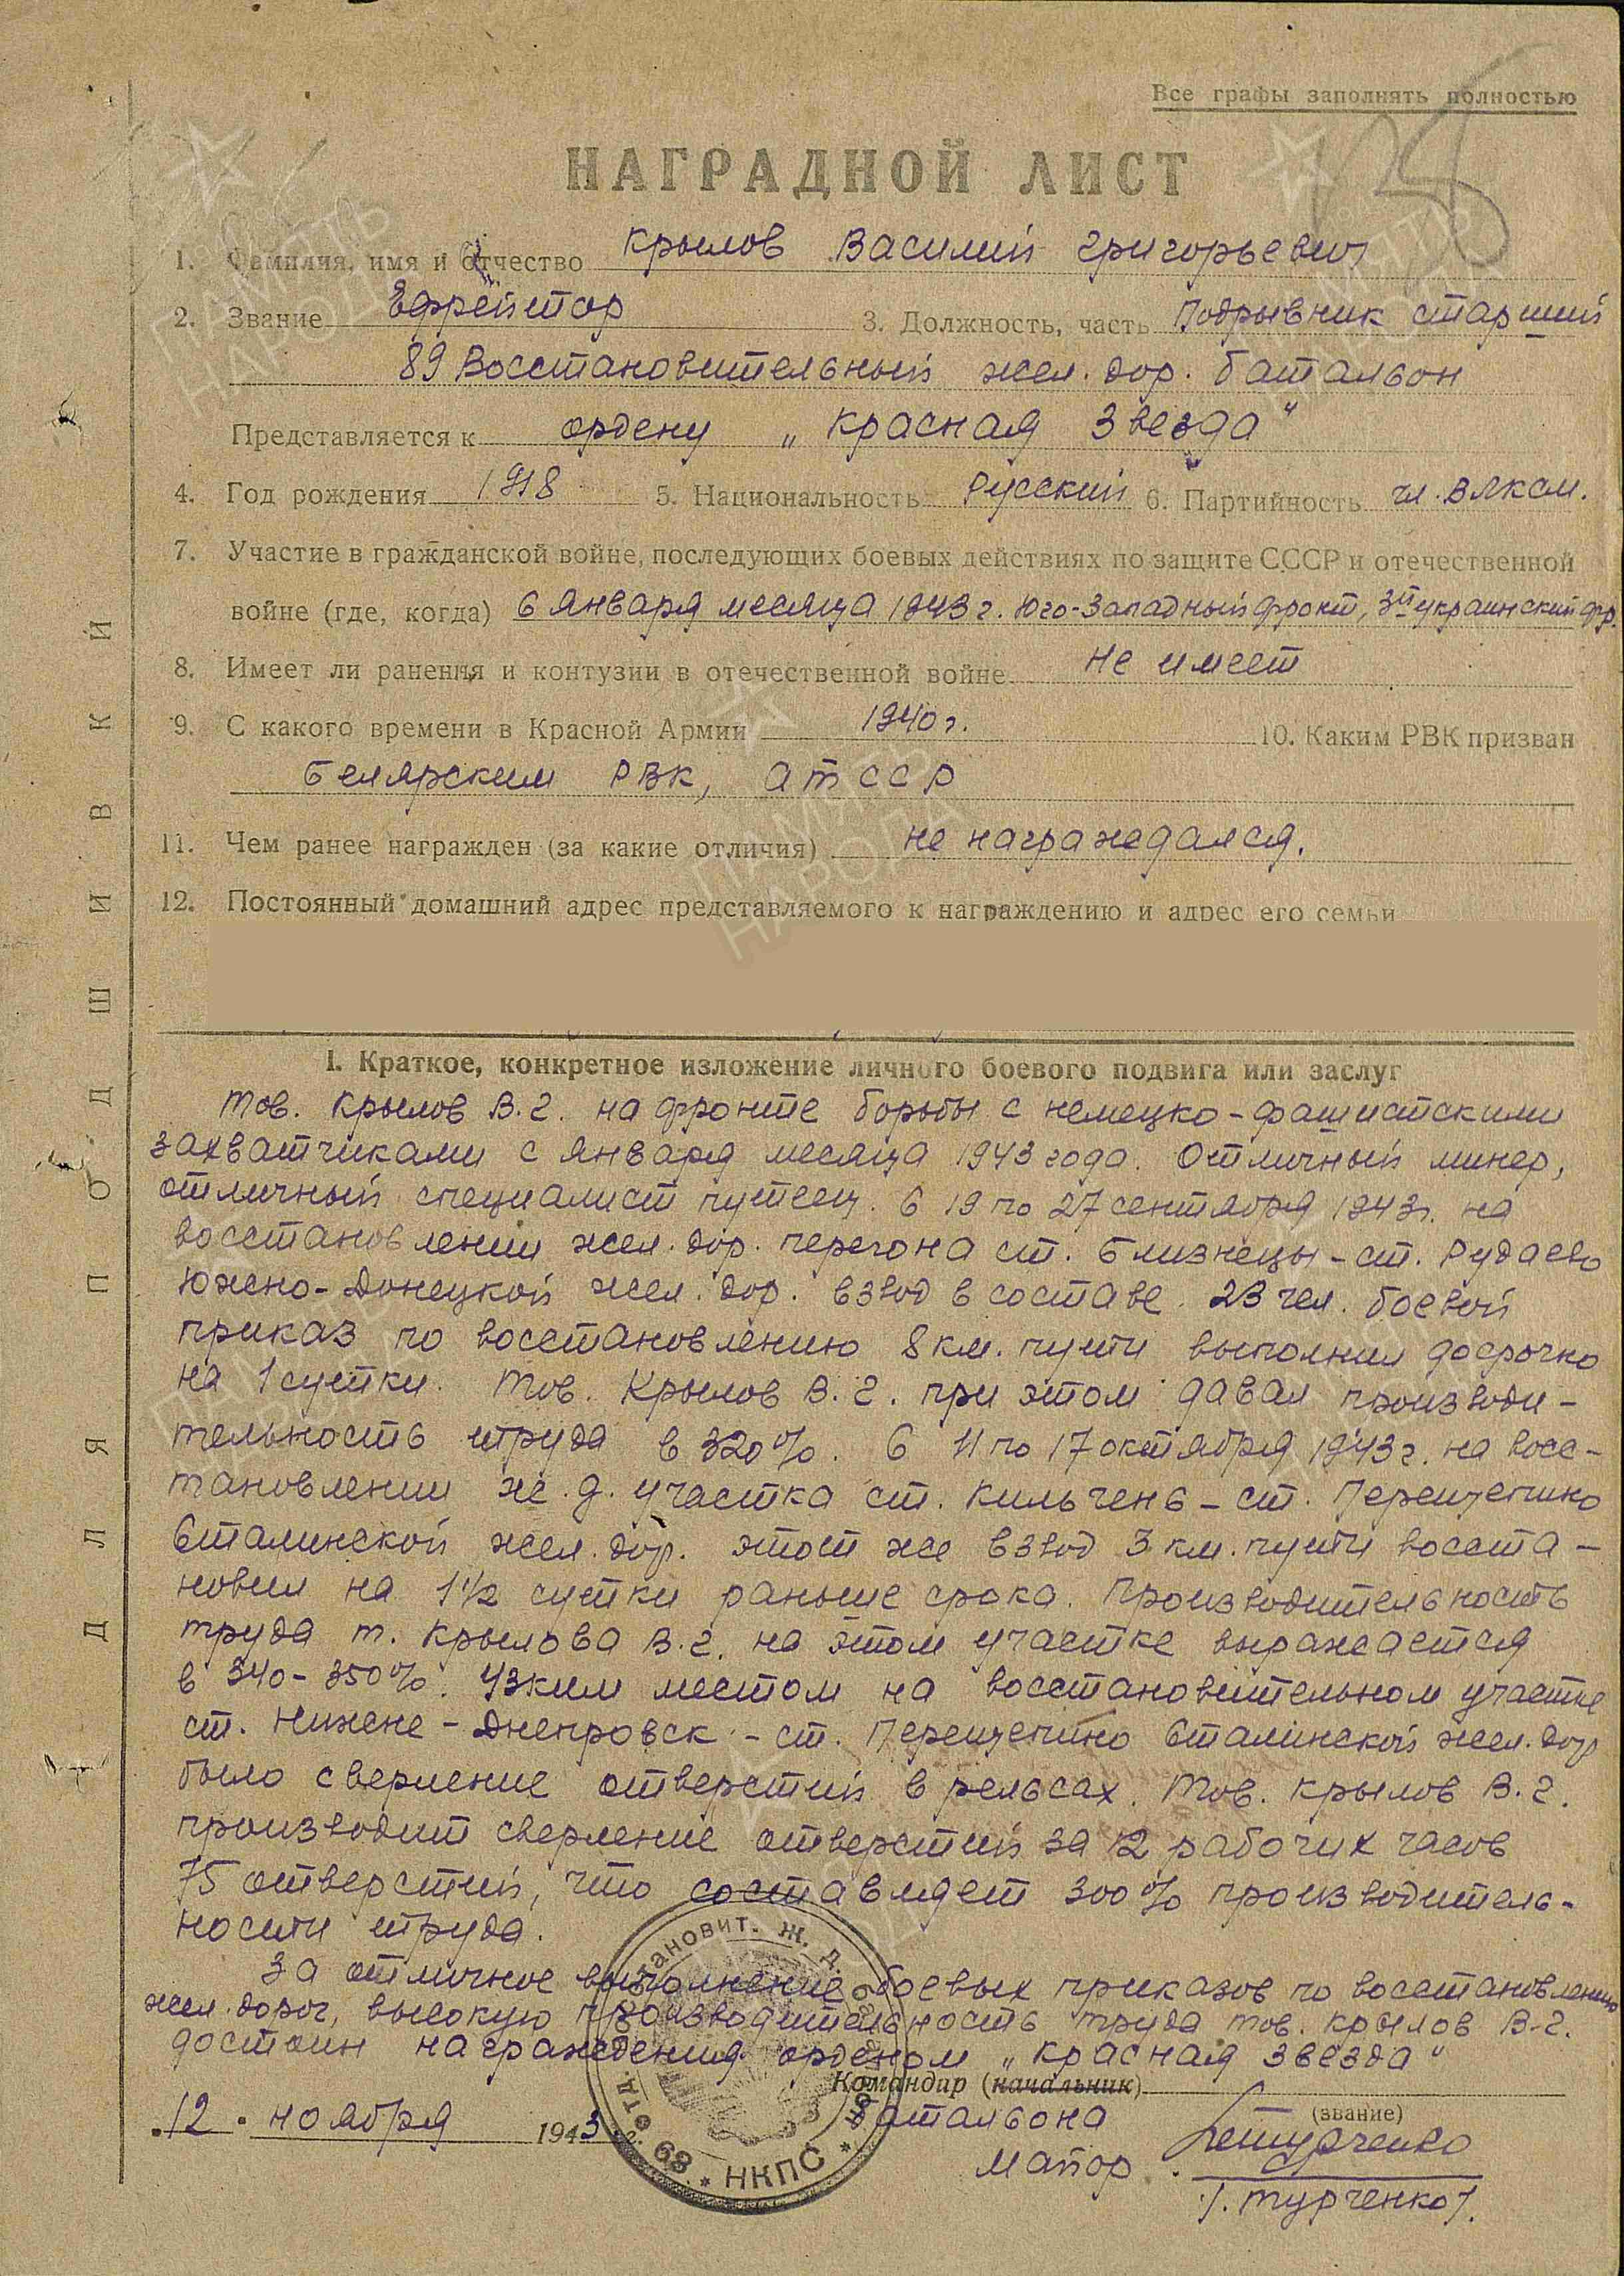 Все графы заполнять полностью
128
НАГРАДНОЙ ЛИСТ
1. Фамилия, имя и отчество Крылов Василий Григорьевич
2. Звание Ефрейтор 3. Должность, часть Подрывник старший
89 Восстановительный жел. дор. батальон
Представляется к ордену „Красная Звезда"
4. Год рождения 1918 5. Национальность Русский 6. Партийность чл. ВЛКСМ.
7. Участие в гражданской войне, последующих боевых действиях по защите СССР и отечественной
войне (где, когда) С января месяца 1943 г. Юго-Западный фронт, 3й украинский фр.
8. Имеет ли ранения и контузии в отечественной войне не имеет
9. С какого времени в Красной Армии 1940 г. 10. Каким РВК призван
Белярским РВК, АТССР
11. Чем ранее награжден (за какие отличия) не награждался.
12. Постоянный домашний адрес представляемого к награждению и адрес его семьи
I. Краткое, конкретное изложение личного боевого подвига или заслуг
Тов. Крылов В.Г. на фронте борьбы с немецко-фашистскими
захватчиками с января месяца 1943 года. Отличный минер,
отличный специалист путеец. С 19 по 27 сентября 1943г. на
восстановлении жел. дор. перегона ст. Близнецы - ст. Рудаево
Южно-Донецкой жел. дор. взвод в составе 23 чел. боевой
приказ по восстановлению 8 км. пути выполнил досрочно
на 1 сутки. Тов. Крылов В.Г. при этом давал производи-
тельность труда в 320%. С 11 по 17 октября 1943г. на восс-
тановлении ж.д. участка ст. Кильчень - ст. Перещепино
Сталинской жел. дор. этот же взвод 3 км. пути восста-
новил на 1 1/2 сутки раньше срока. Производительность
труда т. Крылова В.Г. на этом участке выражается
в 340-350%. Узким местом на восстановительном участке
ст. Нижне-Днепровск - ст. Перещепино Сталинской жел. дор
было сверление отверстий в рельсах. Тов. Крылов В.Г.
производит сверление отверстий за 12 рабочих часов
75 отверстий, что составляет 300% производитель-
ности труда.
За отличное выполнение боевых приказов по восстановлению
жел. дорог, высокую производительность труда тов. Крылов В.Г.
достоин награждения орденом „Красная Звезда"
Командир (начальник)
(звание)
батальона
12. ноября 1943 г.
Майор
/. Турченко/.
ДЛЯ ПОДШИВКИ
89 отд. восстановит. ж. д. НКПС
ПАМЯТЬ НАРОДА